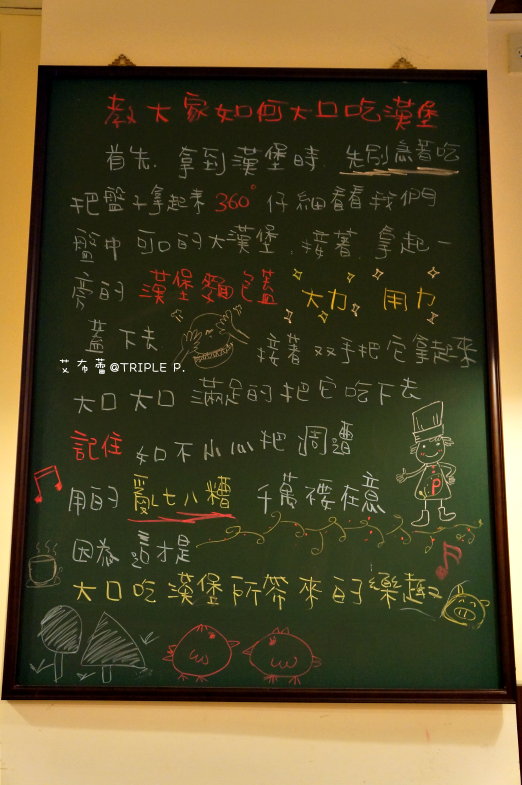 教大家如何大口吃漢堡
首先. 拿到漢堡時 先別急著吃
把盤子拿起來 360° 仔細看看我們
盤中可口的大漢堡. 接著. 拿起一
旁的 漢堡麵包蓋 大力 用力
蓋下去 接著双手把它拿起來
艾布蕾@TRIPLE P.
大口大口 滿足的把它吃下去
記住 如不小心把週遭
P
用的 亂七八糟 千萬褸在意
因為 這才是
大口吃漢堡所帶來的樂趣